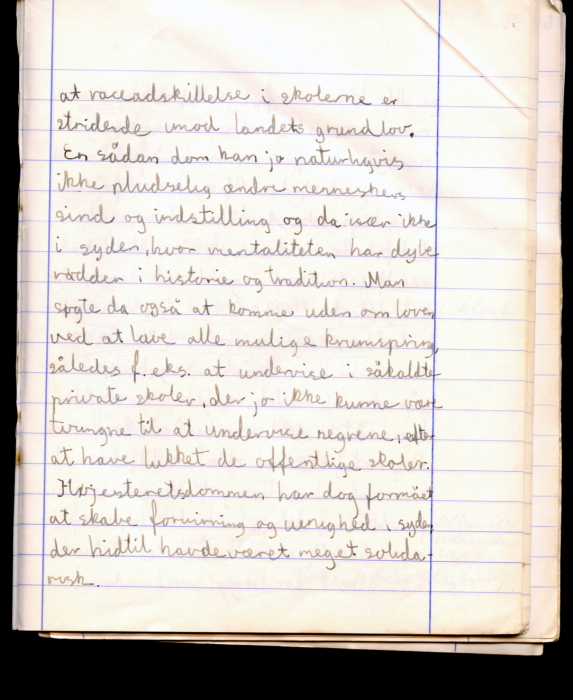 at raceadskillelse i skolerne er
stridende imod landets grundlov.
En sådan dom kan jo naturligvis
ikke pludselig ændre menneskers
sind og indstilling og da især ikke
i syden, hvor mentaliteten har dybe
rødder i historie og tradition. Man
søgte da også at komme uden om loven
ved at lave alle mulige krumspring,
således f. eks. at undervise i såkaldte
private skoler, der jo ikke kunne være
tvungne til at undervise negrene, efter
at have lukket de offentlige skoler.
Højesteretsdommen har dog formået
at skabe forvirring og uenighed i syden
der hidtil havde været meget solida-
risk.